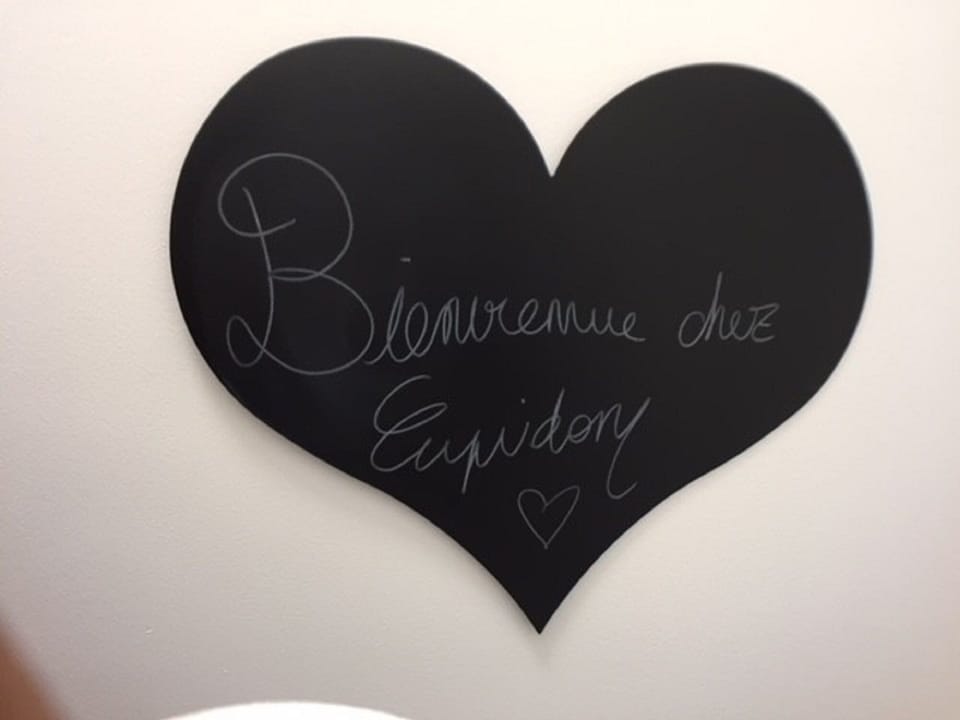 Bienvenue chez
Cupidon